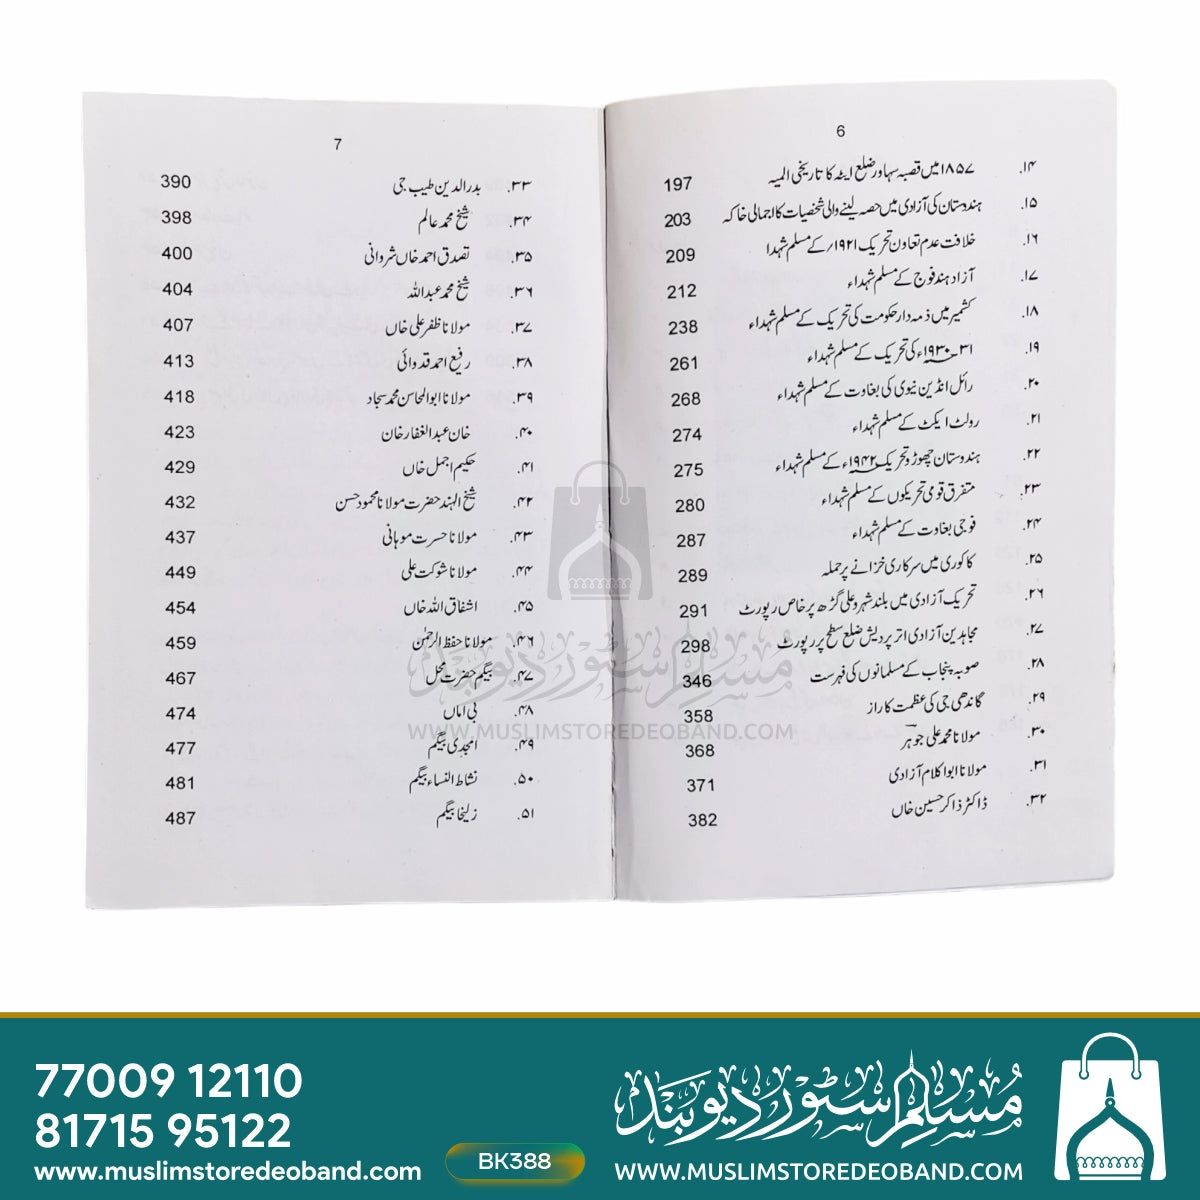 6
۱۴. ۱۸۵۷ میں قصبہ سہاور ضلع ایٹہ کا تاریخی المیہ 197
۱۵. ہندوستان کی آزادی میں حصہ لینے والی شخصیات کا اجمالی خاکہ 203
۱۶. خلافت عدم تعاون تحریک ۱۹۲۱ء کے مسلم شہدا 209
۱۷. آزاد ہند فوج کے مسلم شہداء 212
۱۸. کشمیر میں ذمہ دار حکومت کی تحریک کے مسلم شہداء 238
۱۹. ۳۱-۱۹۳۰ء کی تحریک کے مسلم شہداء 261
۲۰. رائل انڈین نیوی کی بغاوت کے مسلم شہداء 268
۲۱. رولٹ ایکٹ کے مسلم شہداء 274
۲۲. ہندوستان چھوڑو تحریک ۱۹۴۲ء کے مسلم شہداء 275
۲۳. متفرق قومی تحریکوں کے مسلم شہداء 280
۲۴. فوجی بغاوت کے مسلم شہداء 287
۲۵. کاکوری میں سرکاری خزانے پر حملہ 289
۲۶. تحریک آزادی میں بلند شہر و علی گڑھ پر خاص رپورٹ 291
۲۷. مجاہدین آزادی اتر پردیش ضلع سطح پر رپورٹ 298
۲۸. صوبہ پنجاب کے مسلمانوں کی فہرست 346
۲۹. گاندھی جی کی عظمت کا راز 358
۳۰. مولانا محمد علی جوہر 368
۳۱. مولانا ابوا کلام آزادی 371
۳۲. ڈاکٹر ذاکر حسین خاں 382
7
۳۳. بدر الدین طیب جی 390
۳۴. شیخ محمد عالم 398
۳۵. تصدق احمد خاں شروانی 400
۳۶. شیخ محمد عبداللہ 404
۳۷. مولانا ظفر علی خاں 407
۳۸. رفیع احمد قدوائی 413
۳۹. مولانا ابوالمحاسن محمد سجاد 418
۴۰. خان عبدالغفار خان 423
۴۱. حکیم اجمل خاں 429
۴۲. شیخ الہند حضرت مولانا محمود حسن 432
۴۳. مولانا حسرت موہانی 437
۴۴. مولانا شوکت علی 449
۴۵. اشفاق اللہ خاں 454
۴۶. مولانا حفظ الرحمٰن 459
۴۷. بیگم حضرت محل 467
۴۸. بی اماں 474
۴۹. امجدی بیگم 477
۵۰. نشاط النساء بیگم 481
۵۱. زلیخا بیگم 487
مسلم سٹور دیوبند
WWW.MUSLIMSTOREDEOBAND.COM
77009 12110
81715 95122
www.muslimstoredeoband.com
BK388
مسلم سٹور دیوبند
WWW.MUSLIMSTOREDEOBAND.COM